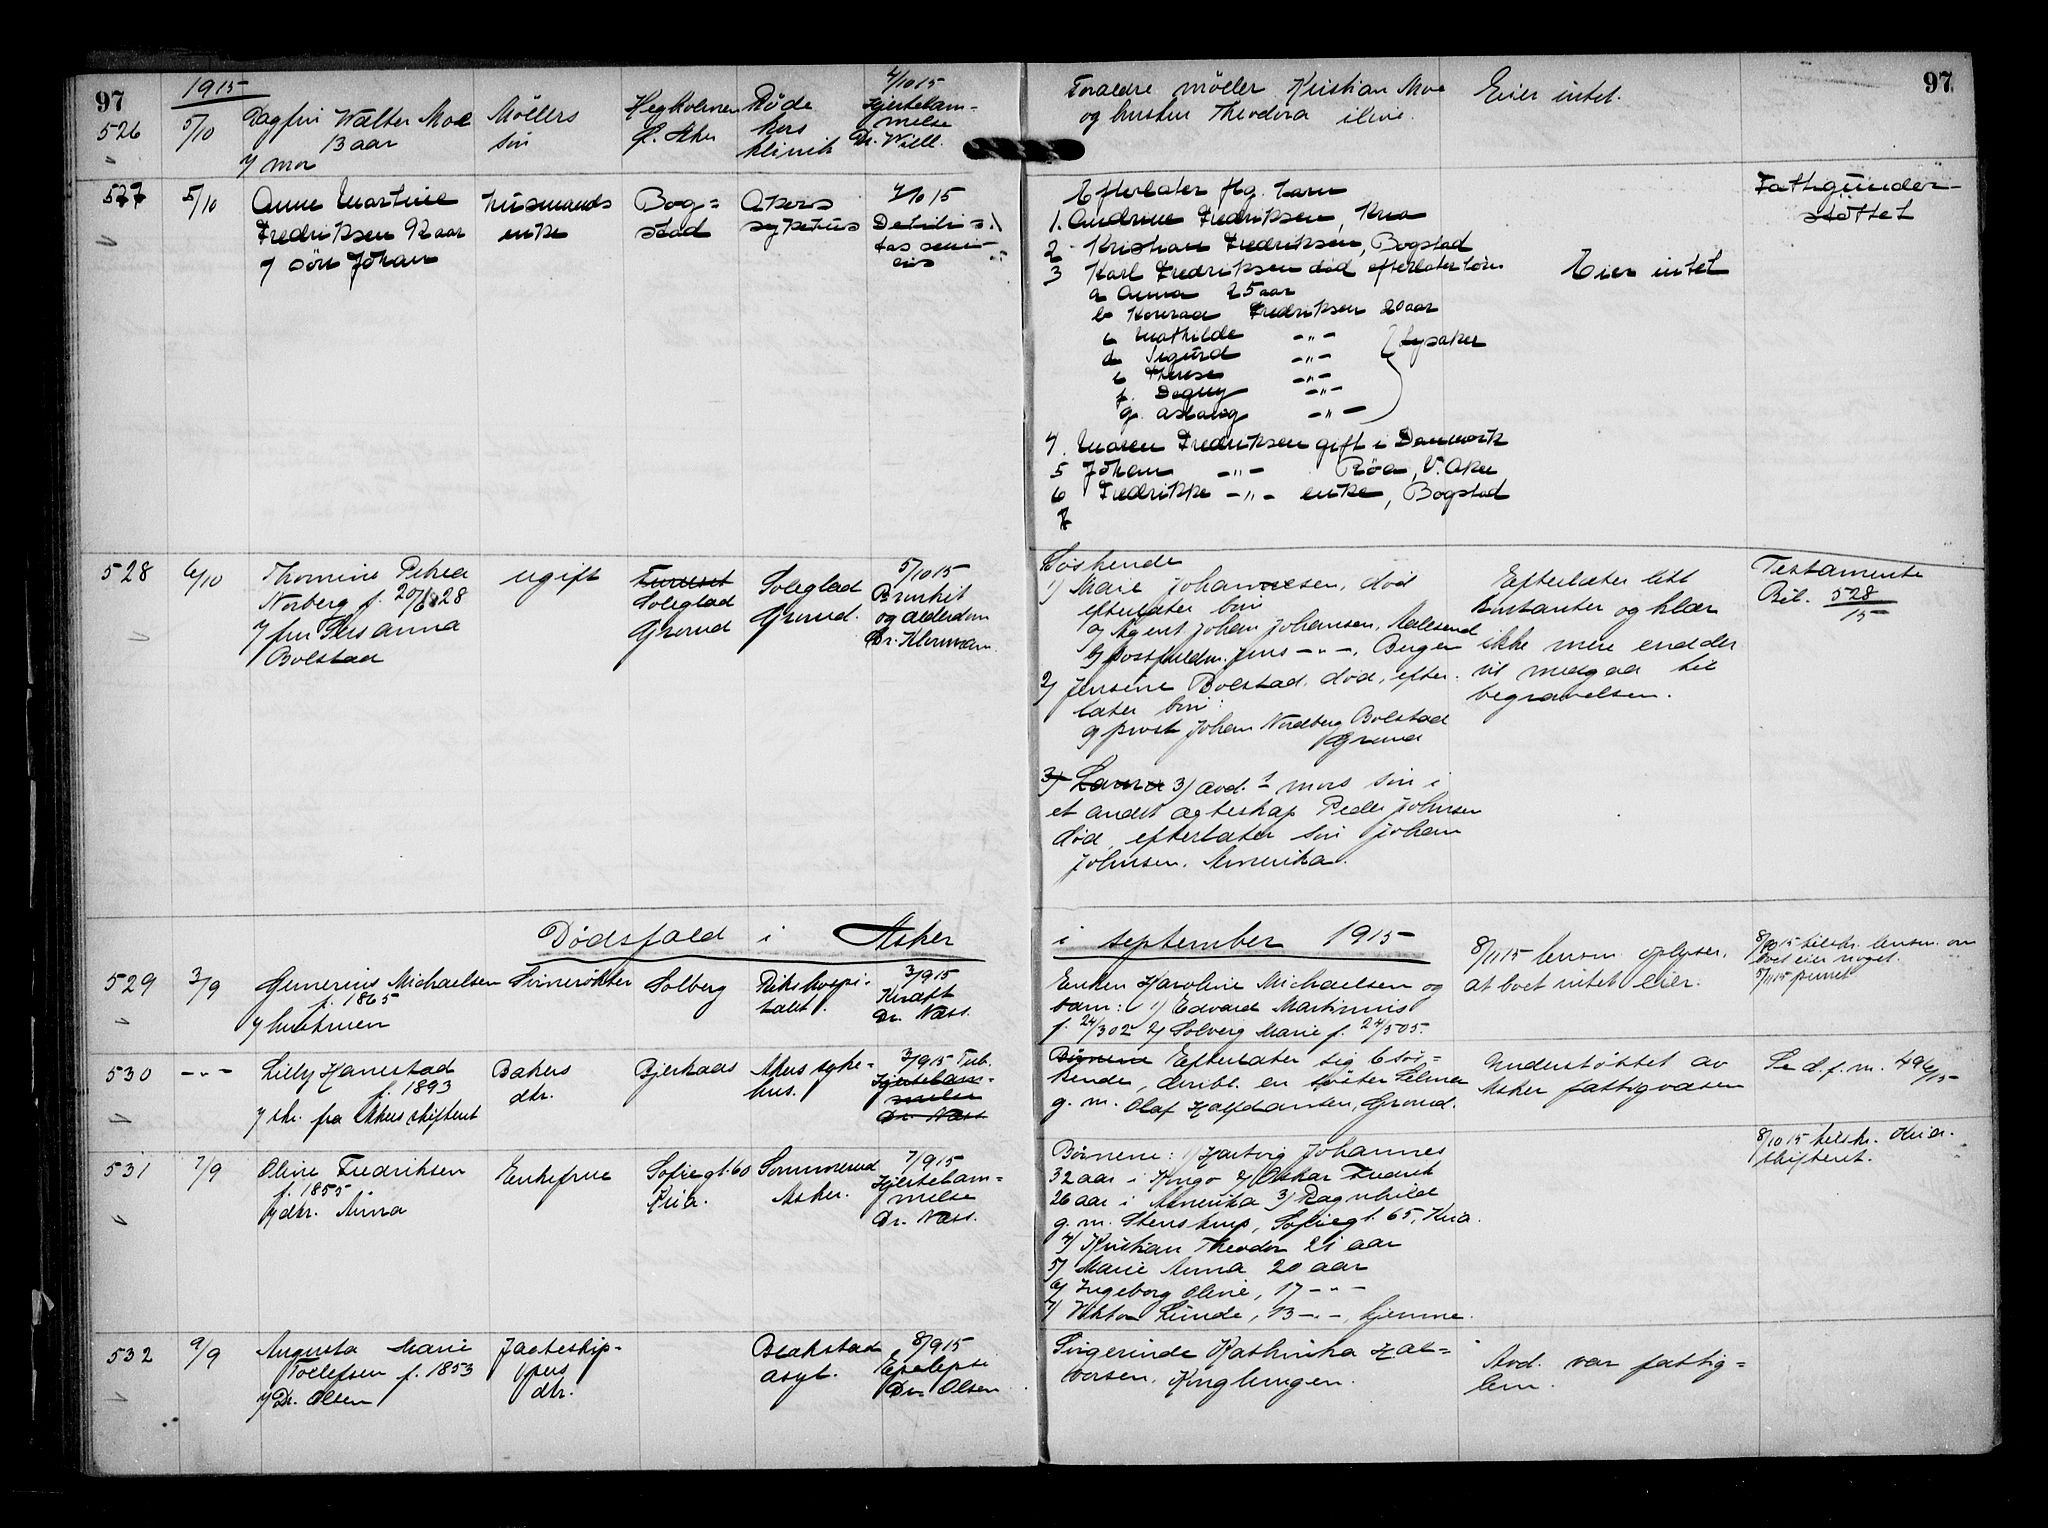 97
1915
526
5/10
Dagfin Walter Moe
13 aar
v/ mor
Møllers
søn
Hegholmen
Ø. Aker
Røde
kors
klinik
4/10 15
Hjertelam-
melse
Dr. Will.
Foraeldre møller Kristian Moe
og hustru Theodora ilive.
Eier intet.
97
527
5/10
Anne Martine
Fredriksen 92 aar
v/ søn Johan
Husmands
enke
Bog-
stad
Akers
sykehus
4/10 15
Debili-
tas seni-
lis
Efterlater flg. barn
1. Andrine Fredriksen, Kria
2 Kristian Fredriksen, Bogstad
3 Karl Fredriksen død efterlater børn
a Anna 25 aar
b Konrad Fredriksen 20 aar
c Mathilde -"-
d Sigurd -"-
e Therese -"-
f. Dagny -"-
g. Aslaug -"-
Lysaker
4. Maren Fredriksen gift i Danmark
5 Johan -"- Røa, V. Aker
6 Fredrikke -"- enke, Bogstad
7
Eier intet
Fattigunder-
støttet
528
6/10
Thomine Petrea
Norberg f. 20/6 28
v/ fru Susanna
Bolstad
ugift
Furuset
Soleglad
Grorud
Soleglad
Grorud.
5/10 15
Bronkit
og alderdom
Dr. Klouman.
Søskende
1) Marie Johannesen, død
efterlater børn
a) Agent Johan Johansen, Aalesund
b) postfuldm. Jens -"-, Bergen
2) Jensine Bolstad, død, efter-
later børn:
a) prost Johan Nordberg Bolstad
Grorud
3) Laura 3) avd.s mors søn i
et andet ægteskap Peder Johnsen
død, efterlater søn Johan
Johnsen, Amerika.
Efterlater litt
kontanter og klær
ikke mere end der
vil medgaa til
begravelsen.
Testamente
Bil. 528/15
Dødsfald i Asker
i september 1915
529
3/9
Gunerius Michaelsen
f. 1865
v/ hustruen
Svinerøkter
Solberg
Rikshospi-
talet.
3/9 15
Kræft
Dr. Næss.
Enken Karoline Michaelsen og
barn: 1) Edvard Martinius
f. 24/3 02 2) Solveig Marie f. 24/5 05.
8/11 15 lensm. oplyser,
at boet intet eier.
8/10 15 tilskr. lensm. om
boet eier noget.
5/11 15 purret
530
-"-
Lilly Hanestad
f. 1893
v/ skr. fra Akers skifteret
Bakers
dtr.
Bjerkaas
Akers syke-
hus.
3/9 15 Tub.
Hjertelam-
melse
Dr. Næss
Børnene Efterlater sig 6 søs-
kende, deribl. en søster Selma
g. m. Olaf Halfdansen, Grorud.
Understøttet av
Asker fattigvæsen
Se d.f. nr. 496/15
531
7/9
Oline Fredriksen
f. 1855
v/ dtr. Anna
Enkefrue
Sofiegt. 60
Kria.
Sommerud
Asker.
7/9 15
Hjertelam-
melse
Dr. Næss.
Børnene: 1) Hartvig Johannes
32 aar i Kongo 2) Oskar Fredrik
26 aar i Amerika 3) Ragnhild
g. m. Stenstrup, Sofiegt. 65, Kria.
4) Kristian Theodor 21 aar
5) Marie Anna 20 aar
6) Ingeborg Oline, 17 -"-
7) Viktor Lunde, 13 -"-, hjemme.
8/10 15 tilskr. Kria.
skifteret.
532
9/9
Augusta Marie
Tollefsen f. 1853
v/ Dr. Olsen
Jagteskip-
pers
dtr.
Blakstad
asyl.
8/9 15
Epilepsi
Dr. Olsen
Svigerinde Kathinka Hal-
vorsen, Konglungen.
Avd. var fattig-
lem.